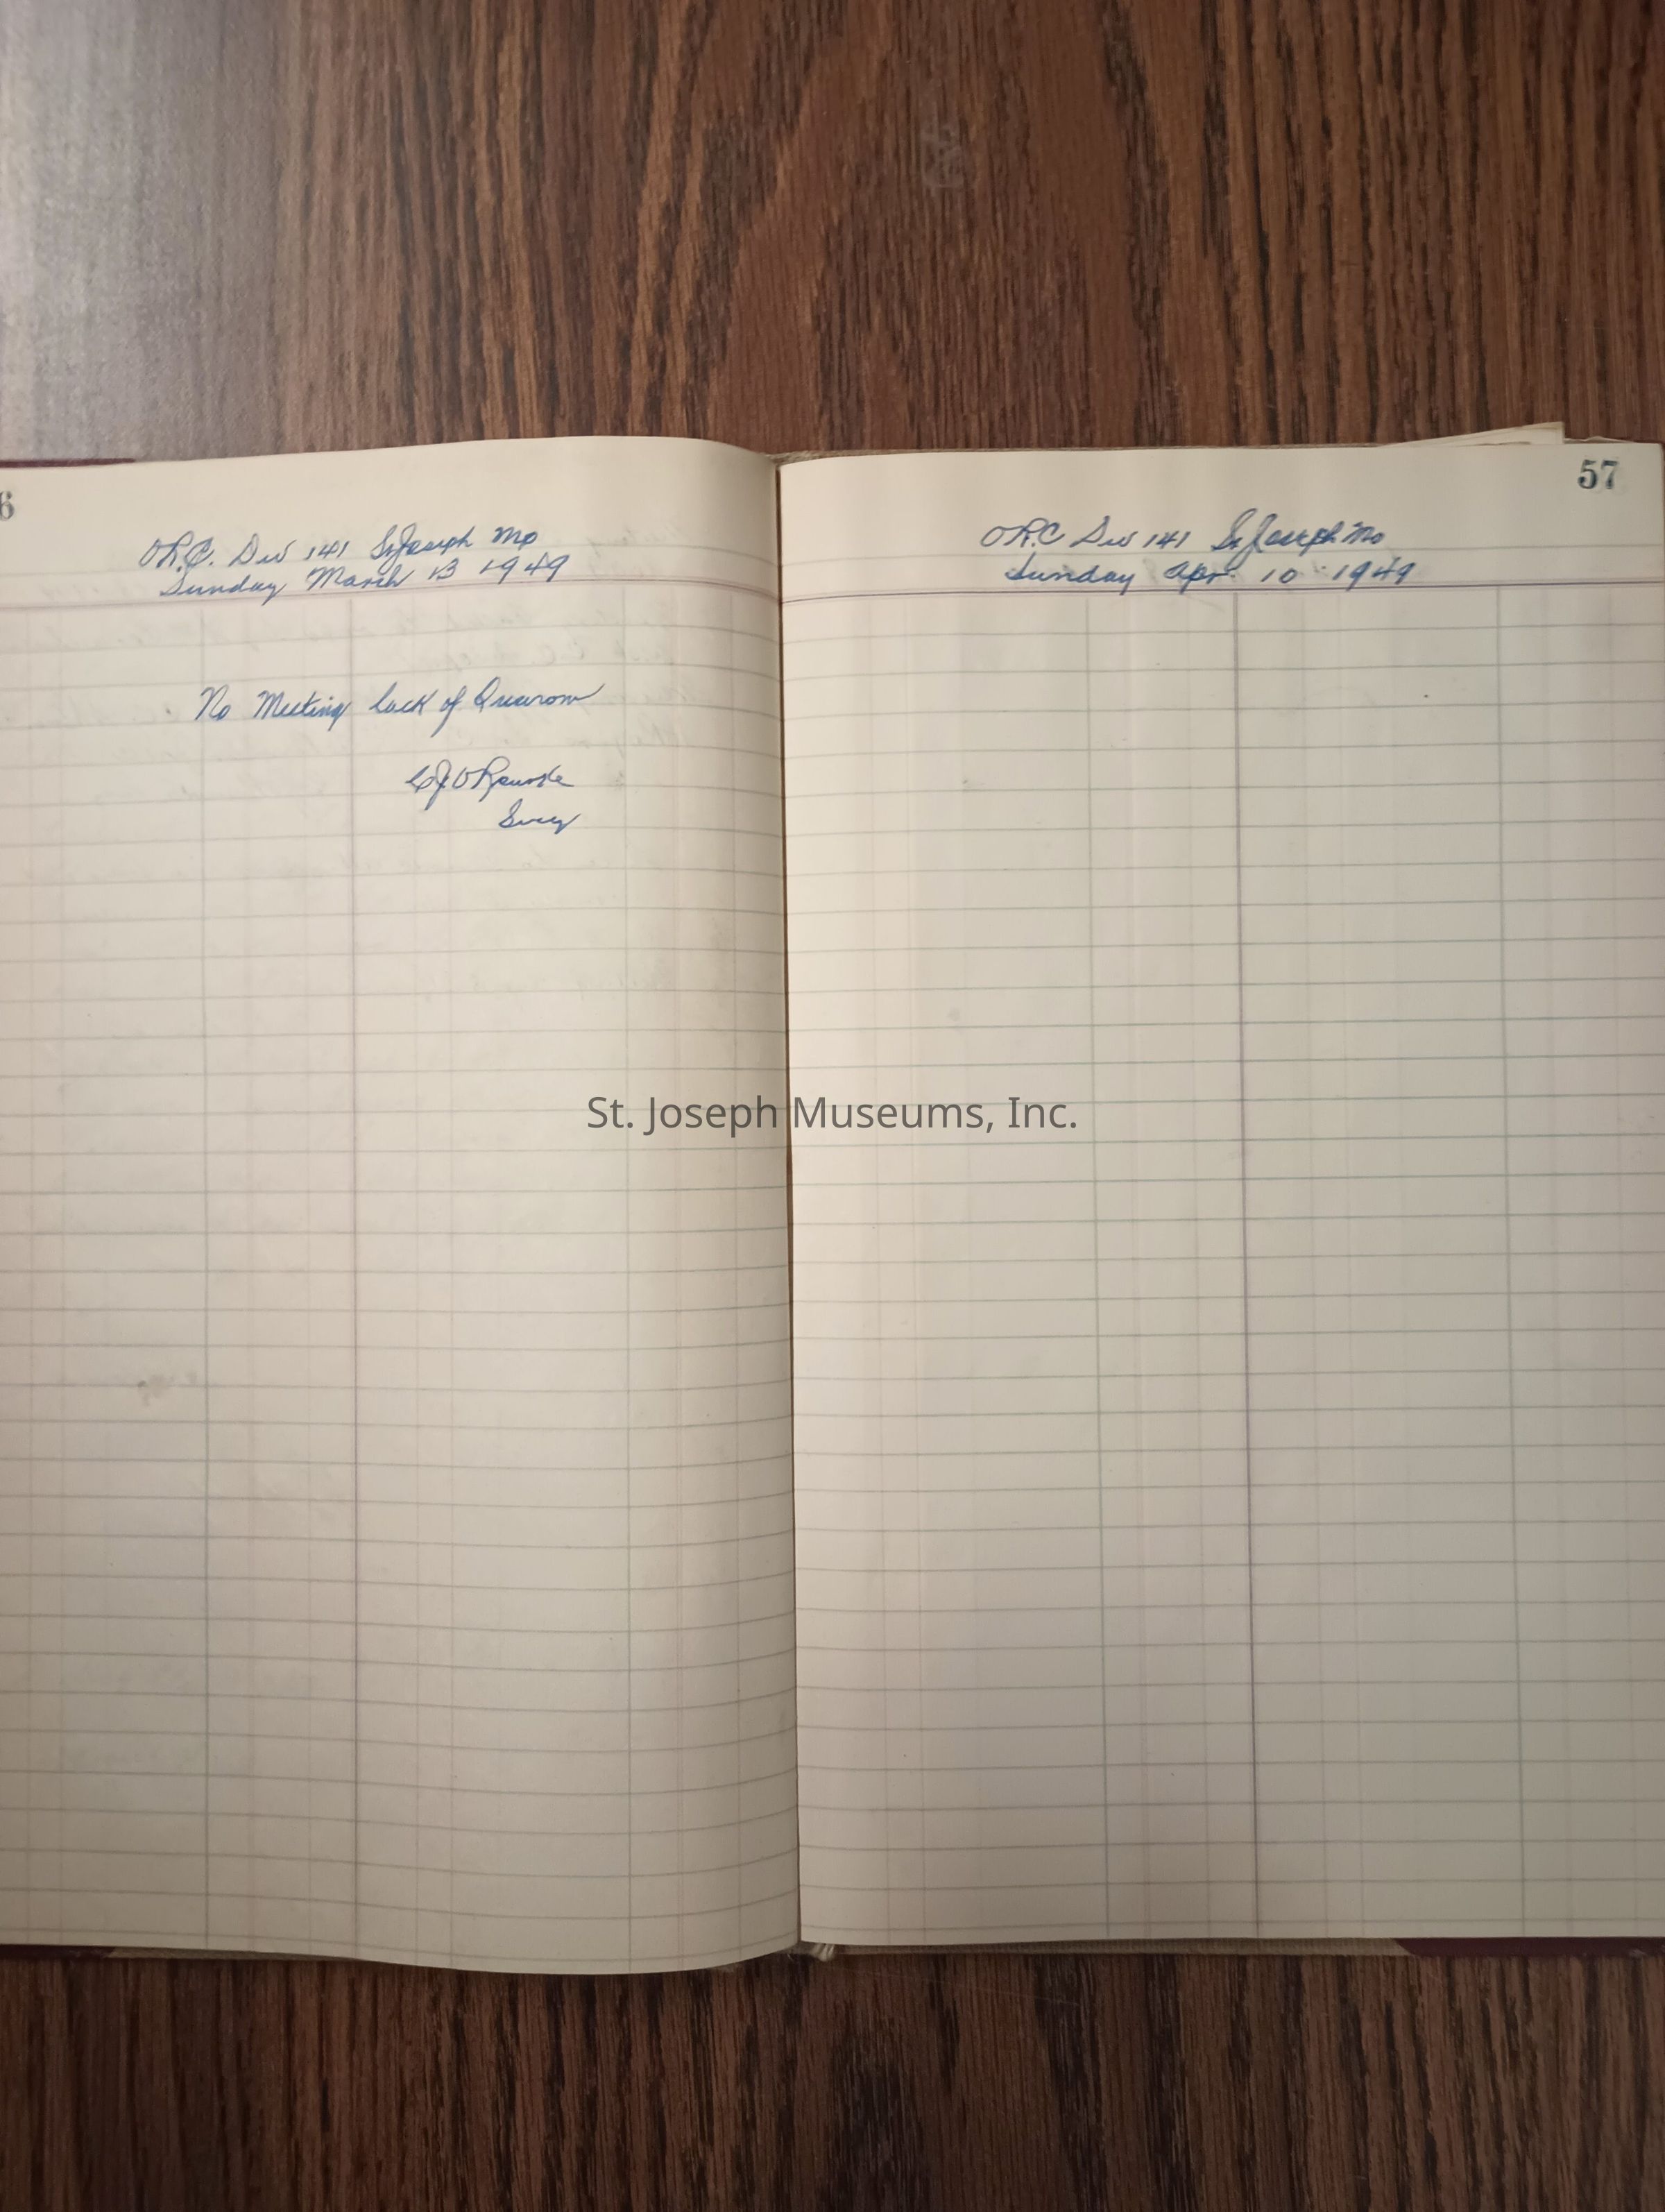 6
O.R.C. Div 141 St Joseph Mo
Sunday March 13 1949
No Meeting lack of Quarom
O'Rourke
Secy
57
O.R.C Div 141 St Joseph Mo
Sunday Apr. 10 1949
St. Joseph Museums, Inc.